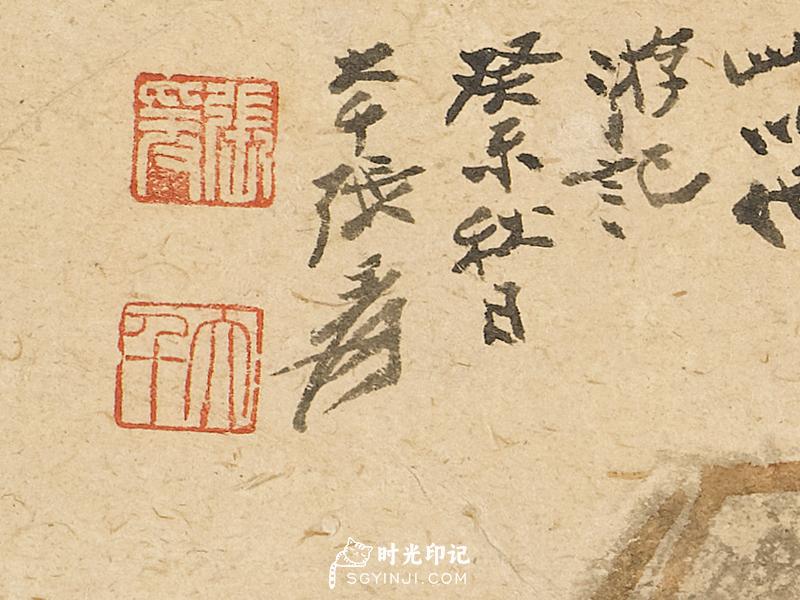 游記
癸未秋日
大千張爰
張爰
大千
时光印记
SGYINJI.COM